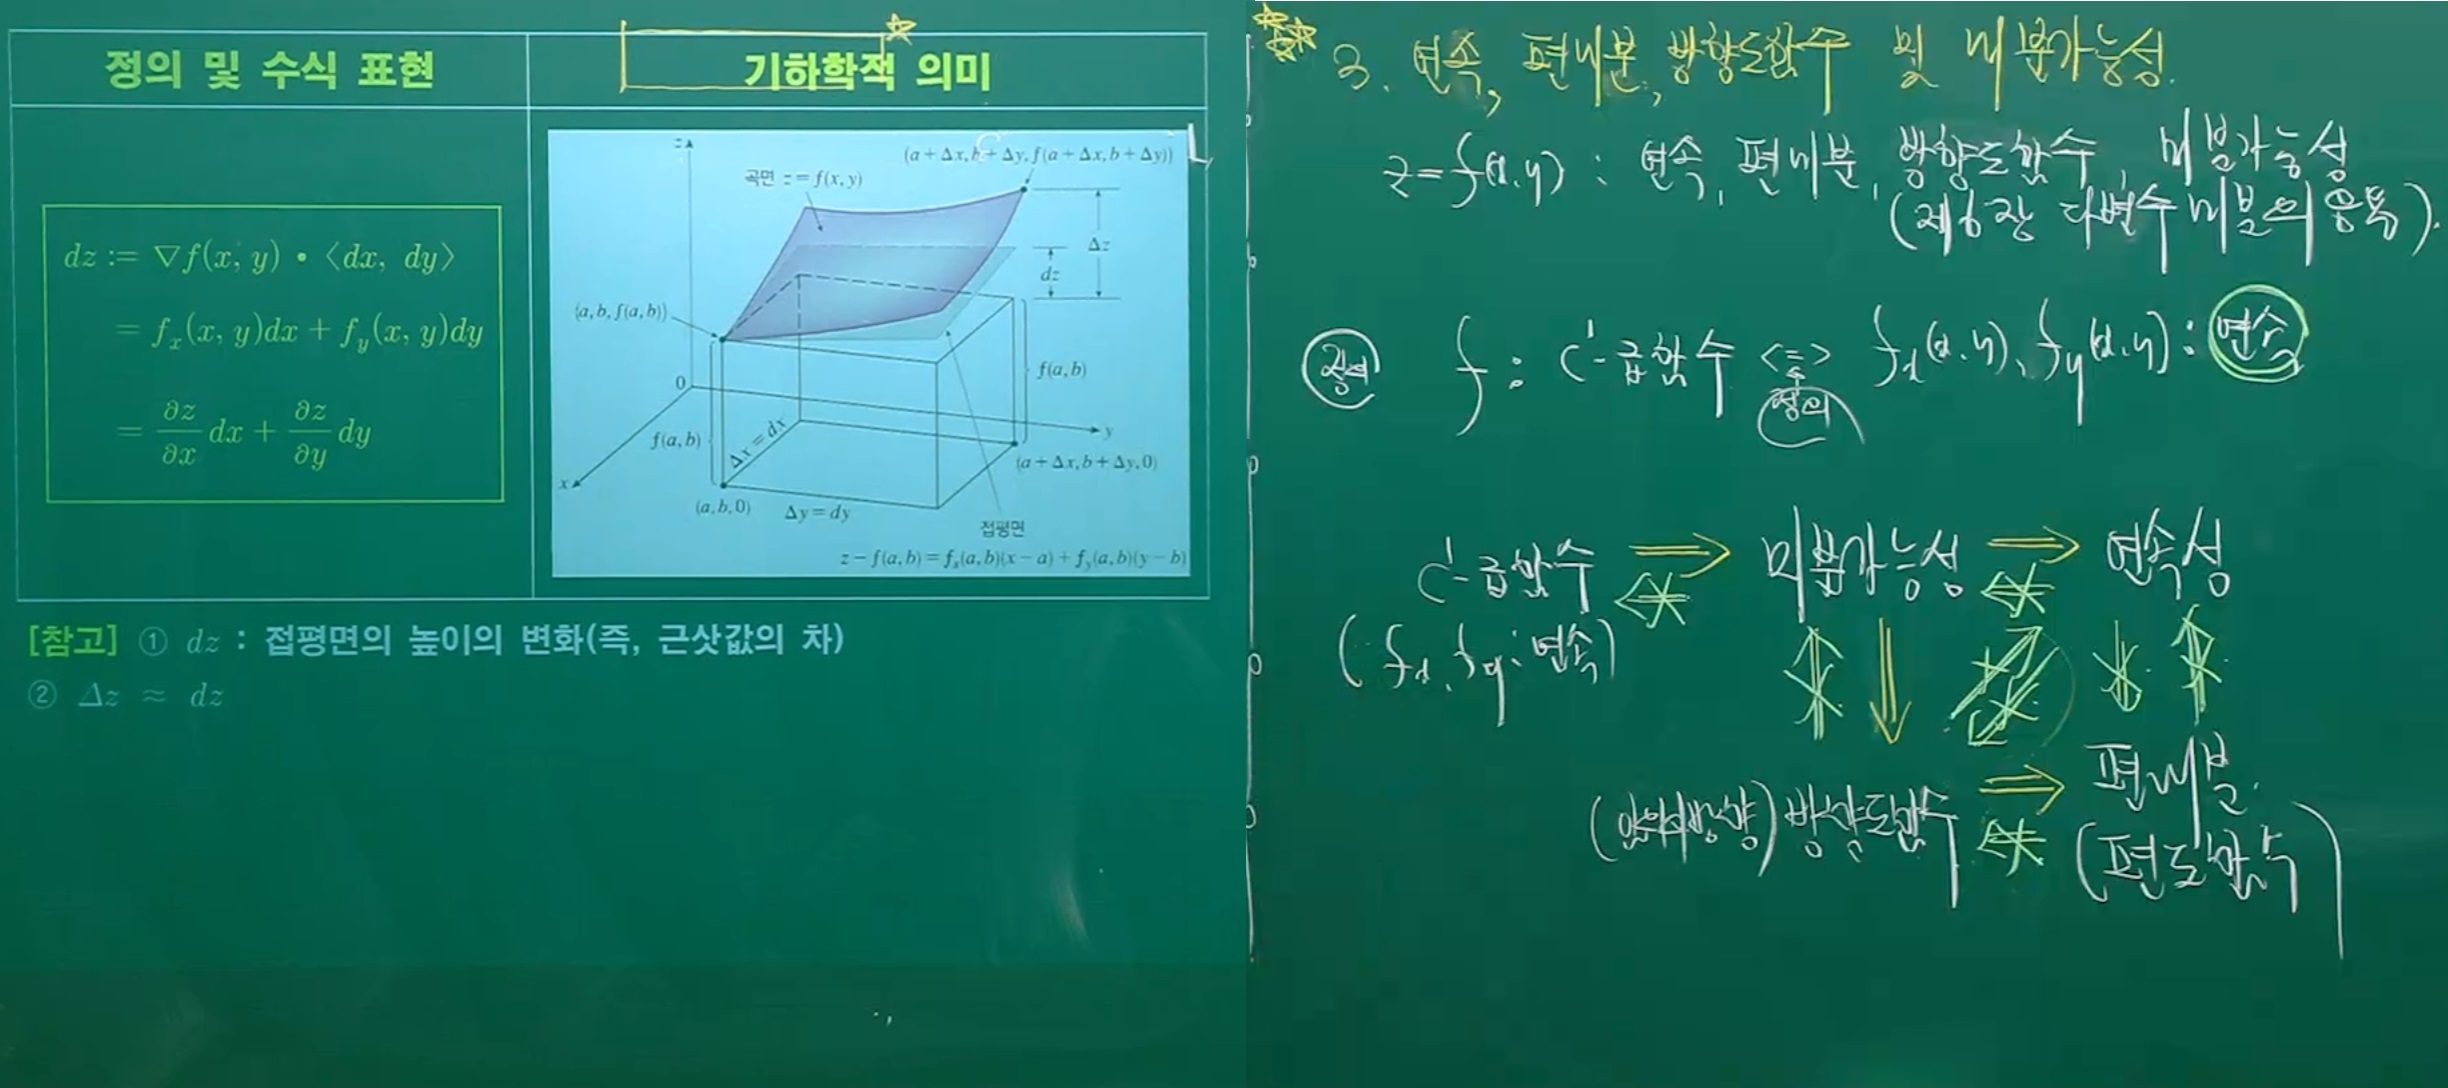 정의 및 수식 표현
기하학적 의미
dz := ∇f(x, y) • ⟨dx, dy⟩
= f_x(x, y)dx + f_y(x, y)dy
= ∂z/∂x dx + ∂z/∂y dy
z
(a + Δx, b + Δy, f(a + Δx, b + Δy))
곡면 z = f(x, y)
Δz
dz
(a, b, f(a, b))
0
f(a, b)
f(a, b)
Δx = dx
y
(a + Δx, b + Δy, 0)
x
(a, b, 0)
Δy = dy
접평면
z − f(a, b) = f_x(a, b)(x − a) + f_y(a, b)(y − b)
[참고] ① dz : 접평면의 높이의 변화(즉, 근삿값의 차)
② Δz ≈ dz
3. 연속, 편미분, 방향도함수 및 미분가능성.
z = f(x, y) : 연속, 편미분, 방향도함수, 미분가능성
(제6장 다변수 미분의 응용).
정의 f : C¹-급함수 <=> f_x(x, y), f_y(x, y) : 연속
정의
C¹-급함수 ⇒ 미분가능성 ⇒ 연속성
(f_x, f_y : 연속)
(임의방향) 방향도함수 ⇒ 편미분.
(편도함수)